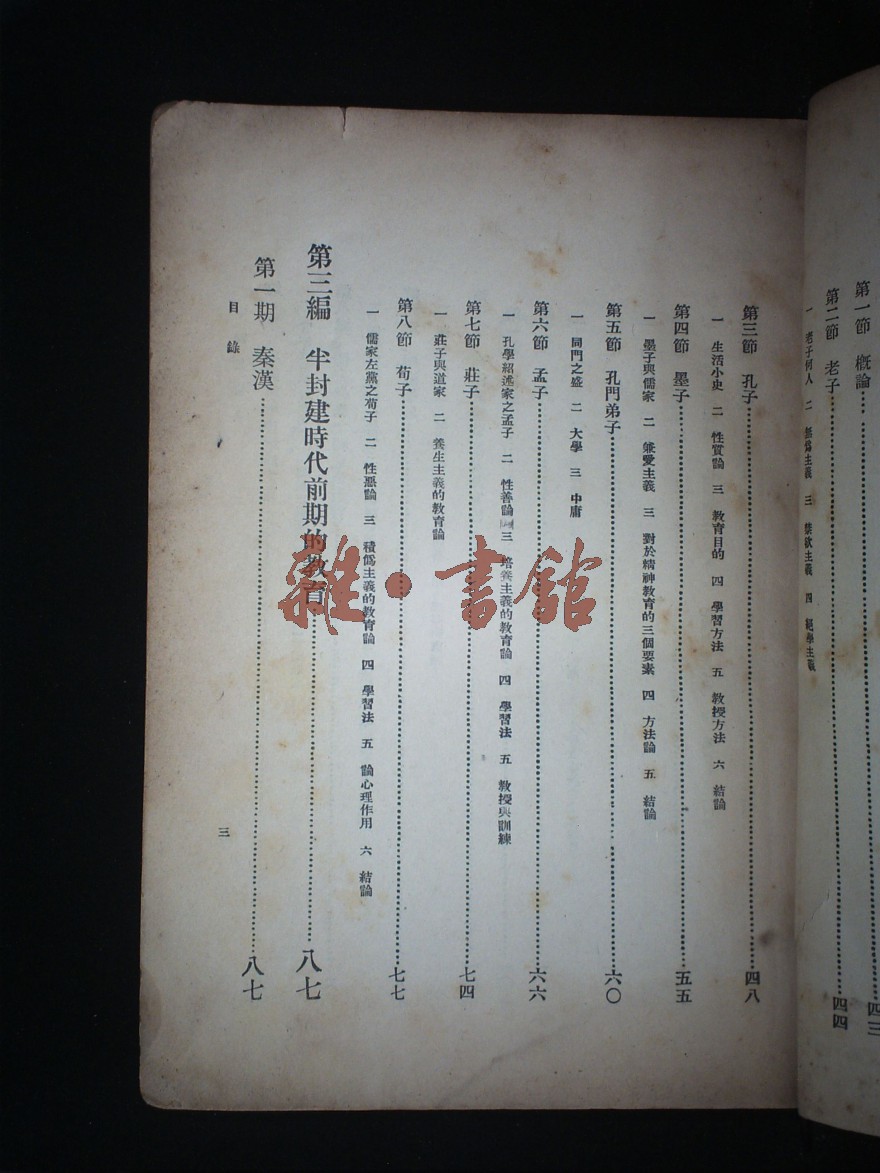 第一節 概論……四三
第二節 老子……四四
一 老子何人 二 無為主義 三 禁欲主義 四 絕學主義
第三節 孔子……四八
一 生活小史 二 性質論 三 教育目的 四 學習方法 五 教授方法 六 結論
第四節 墨子……五五
一 墨子與儒家 二 兼愛主義 三 對於精神教育的三個要素 四 方法論 五 結論
第五節 孔門弟子……六〇
一 同門之盛 二 大學 三 中庸
第六節 孟子……六六
一 孔學紹述家之孟子 二 性善論 三 培養主義的教育論 四 學習法 五 教授與訓練
第七節 莊子……七四
一 莊子與道家 二 養生主義的教育論
第八節 荀子……七七
一 儒家左黨之荀子 二 性惡論 三 積偽主義的教育論 四 學習法 五 論心理作用 六 結論
第三編 半封建時代前期的教育……八七
第一期 秦漢……八七
目錄
三
雜·書館